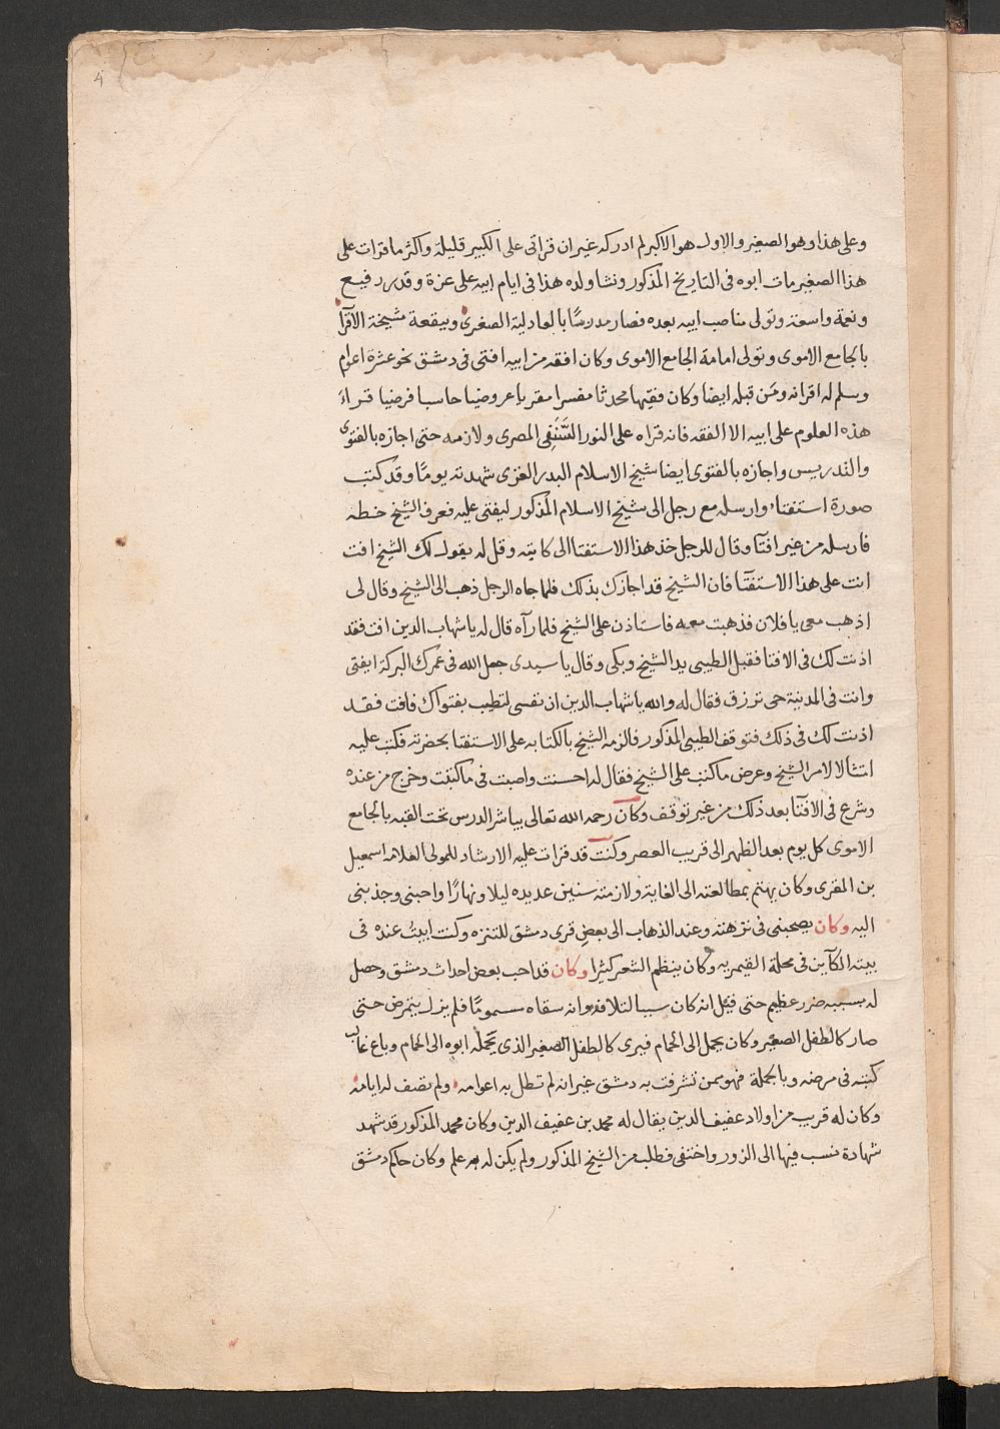 4
وعلى هذا وهو الصغير والاول هو الاكبر لم ادركه غير ان قراتى على الكبير قليلة واكثر ما قرات على
هذا الصغير مات ابوه فى التاريخ المذكور ونشا ولده هذا فى ايام ابيه على عزة وقدر رفيع
ونعمة واسعة وتولى مناصب ابيه بعده فصار مدرسًا بالعادلية الصغرى وببقعة مشيخة الاقرآ
بالجامع الاموى وتولى امامة الجامع الاموى وكان افقه من ابيه افتى فى دمشق نحو عشرة اعوام
وسلم له اقرانه ومَن قبله ايضا وكان فقيها محدثا مفسرا مقريا عروضيا حاسبا فرضيا قراءَ
هذه العلوم على ابيه الا الفقه فانه قراه على النور النَّسَفِى المصرى ولازمه حتى اجازه بالفتوى
والتدريس واجازه بالفتوى ايضا شيخ الاسلام البدر الغزى شهدته يومًا وقد كتب
صورة استفتاء وارسله مع رجل الى شيخ الاسلام المذكور ليفتى عليه فعرف الشيخ خطه
فارسله من غير افتآ وقال للرجل خذ هذا الاستفتا الى كاتبه وقل له يقول لك الشيخ افت
انت على هذا الاستفتآ فان الشيخ قد اجازك بذلك فلما جاه الرجل ذهب الى الشيخ وقال لى
اذهب معى يا فلان فذهبت معه فاستاذن على الشيخ فلما رآه قال له يا شهاب الدين افت فقد
اذنت لك فى الافتا فقبل الطيبى يد الشيخ وبكى وقال يا سيدى جعل الله فى عمرك البركة ايفتى
وانت فى المدينة حى ترزق فقال له والله يا شهاب الدين ان نفسى لتطيب بفتواك فافت فقد
اذنت لك فى ذلك فتوقف الطيبى المذكور فالزمه الشيخ بالكتابه على الاستفتا بحضرته فكتب عليه
امتثالا لامر الشيخ وعرض ما كتب على الشيخ فقال له احسنت واصبت فى ما كتبت وخرج من عنده
وشرع فى الافتآ بعد ذلك من غير توقف وكان رحمه الله تعالى يباشر الدرس تحت القبه بالجامع
الاموى كل يوم بعد الظهر الى قريب العصر وكنت قد قرات عليه الارشاد للمولى العلامه اسمعيل
بن المقرى وكان يهتم بمطالعته الى الغاية ولازمته سنين عديده ليلا ونهارًا واحبنى وجذبنى
اليه وكان يصحبنى فى نزهته وعند الذهاب الى بعض قرى دمشق للتنزه وكنت ابيتُ عنده فى
بيته الكآين فى محلة القيمريه وكان ينظم الشعر كثيرا وكان قد احب بعض احداث دمشق وحصل
له بسببه ضرر عظيم حتى قيل انه كان سببا لتلافه وانه سقاه سمومًا فلم يزل يتمرض حتى
صار كالطفل الصغير وكان يحمل الى الحمام فيرى كالطفل الصغير الذى يَحملُه ابوه الى الحمام وباع غالب
كتبه فى مرضه وبالجملة فهو ممن تشرفت به دمشق غير انه لم تطل به اعوامه ولم تصف له ايامه
وكان له قريب من اولاد عفيف الدين يقال له محمد بن عفيف الدين وكان محمد المذكور قد شهد
شهادة نسب فيها الى الزور واختفى فطلب من الشيخ المذكور ولم يكن له به علم وكان حاكم دمشق